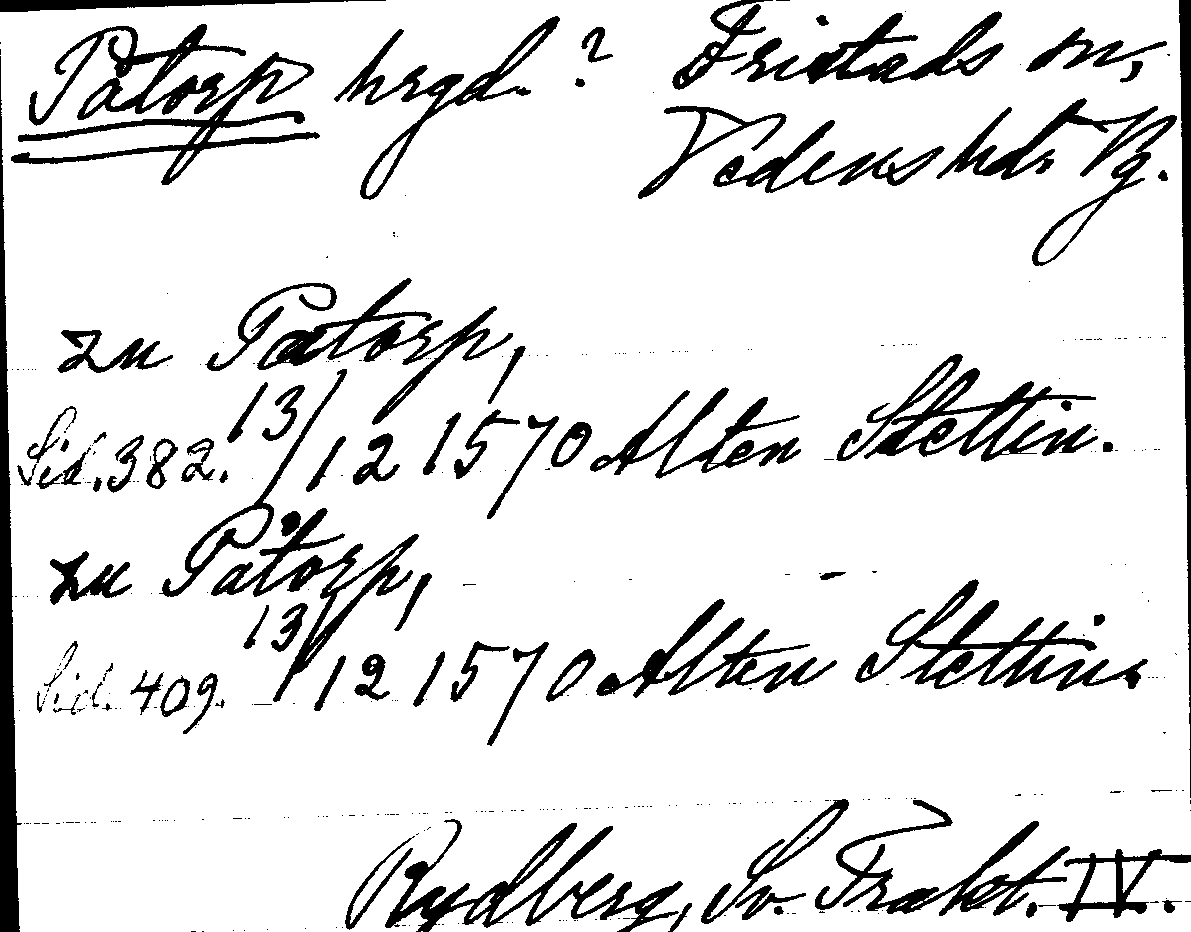 Påtorp hrgd.? Fristads sn,
Vedens hd. Vg.
zu Patorp,
Sid. 382. 13/12 1570 Alten Stettin.
zu Påtorp,
Sid. 409. 13/12 1570 Alten Stettin.
Rydberg, Sv. Trakt. IV.